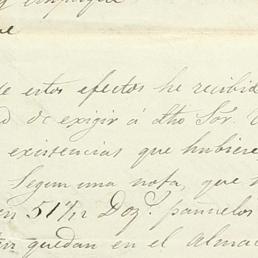 de estos efectos he recibid
d de exigir á dho Sor.
existencias que hubiere
Segun una nota, que
en 51 7/12 Doz.ˢ pañuelos
quedan en el Almac